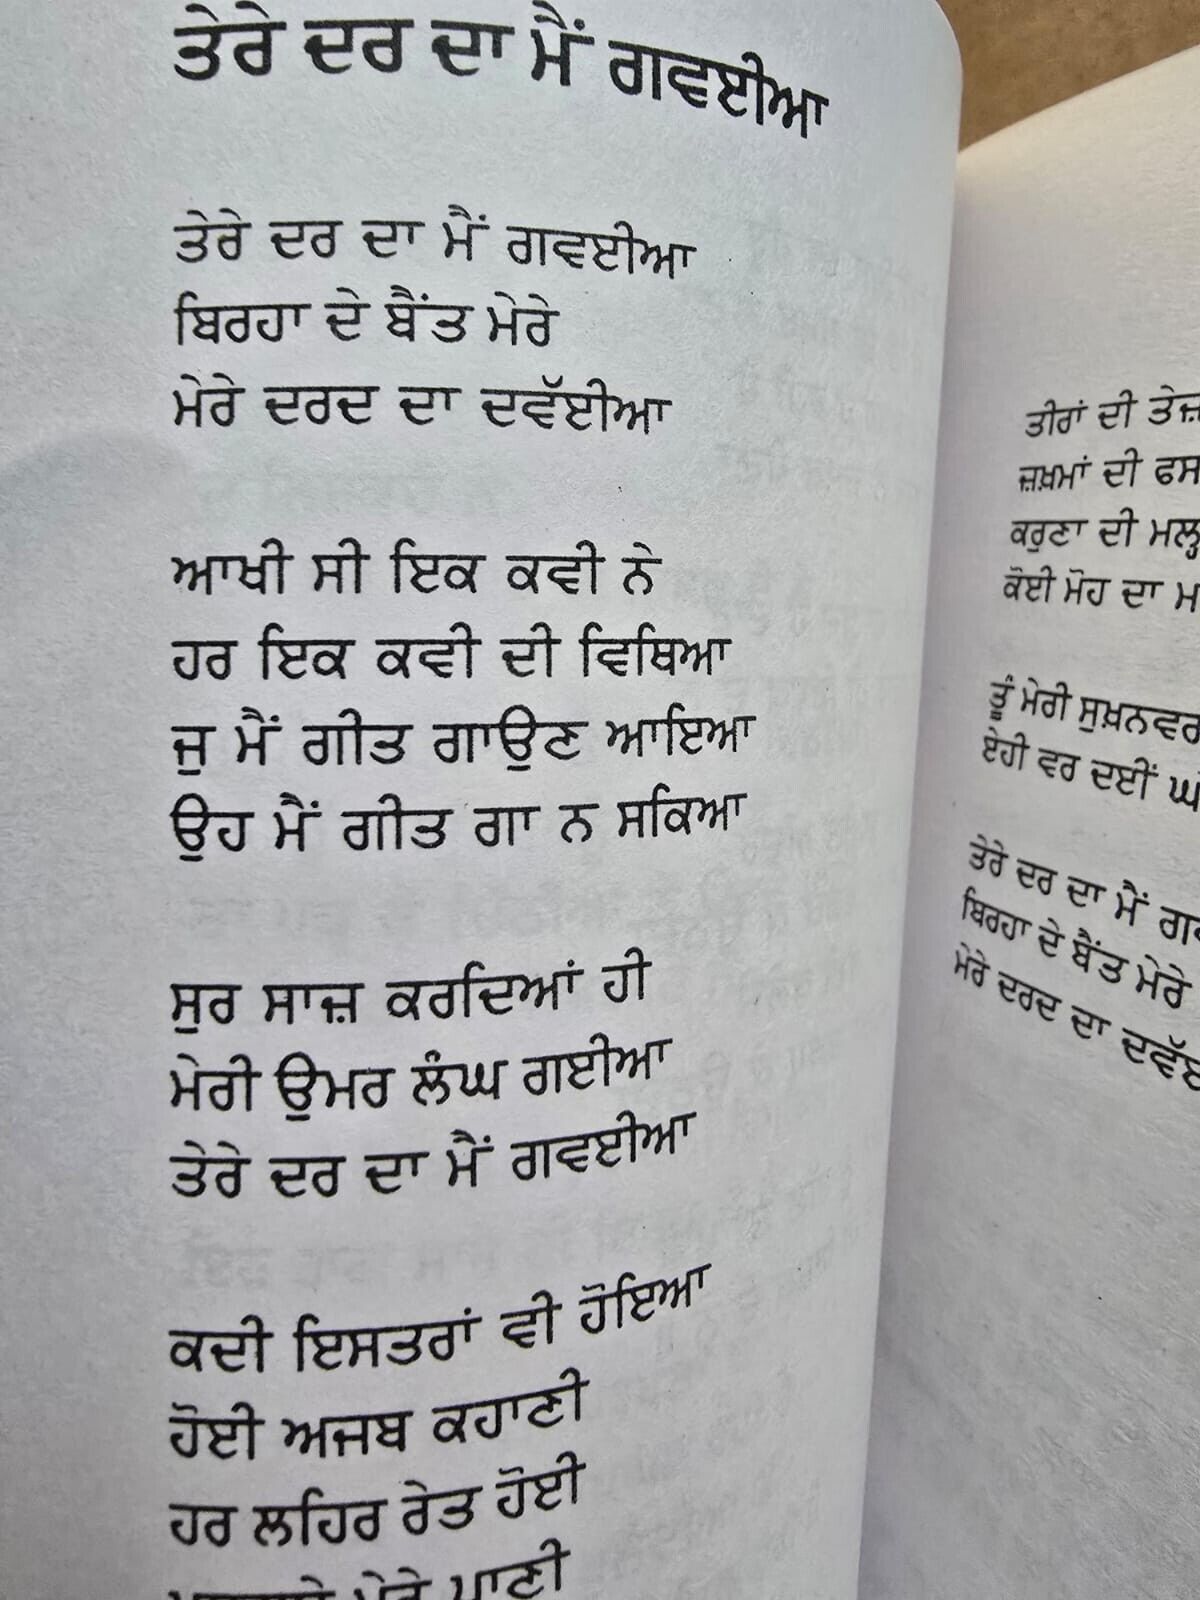 ਤੇਰੇ ਦਰ ਦਾ ਮੈਂ ਗਵਈਆ
ਤੇਰੇ ਦਰ ਦਾ ਮੈਂ ਗਵਈਆ
ਬਿਰਹਾ ਦੇ ਬੈਂਤ ਮੇਰੇ
ਮੇਰੇ ਦਰਦ ਦਾ ਦਵੱਈਆ
ਆਖੀ ਸੀ ਇਕ ਕਵੀ ਨੇ
ਹਰ ਇਕ ਕਵੀ ਦੀ ਵਿਥਿਆ
ਜੁ ਮੈਂ ਗੀਤ ਗਾਉਣ ਆਇਆ
ਉਹ ਮੈਂ ਗੀਤ ਗਾ ਨ ਸਕਿਆ
ਸੁਰ ਸਾਜ਼ ਕਰਦਿਆਂ ਹੀ
ਮੇਰੀ ਉਮਰ ਲੰਘ ਗਈਆ
ਤੇਰੇ ਦਰ ਦਾ ਮੈਂ ਗਵਈਆ
ਕਦੀ ਇਸਤਰਾਂ ਵੀ ਹੋਇਆ
ਹੋਈ ਅਜਬ ਕਹਾਣੀ
ਹਰ ਲਹਿਰ ਰੇਤ ਹੋਈ
ਮੇਰੇ ਪਾਣੀ
ਤੀਰਾਂ ਦੀ
ਜ਼ਖ਼ਮਾਂ ਦੀ
ਕਰੁਣਾ ਦੀ
ਕੋਈ ਮੋਹ ਦਾ
ਤੂੰ ਮੇਰੀ ਸੁਖ਼ਨਵਰ
ਏਹੀ ਵਰ ਦਈਂ
ਤੇਰੇ ਦਰ ਦਾ ਮੈਂ
ਬਿਰਹਾ ਦੇ ਬੈਂਤ ਮੇਰੇ
ਮੇਰੇ ਦਰਦ ਦਾ